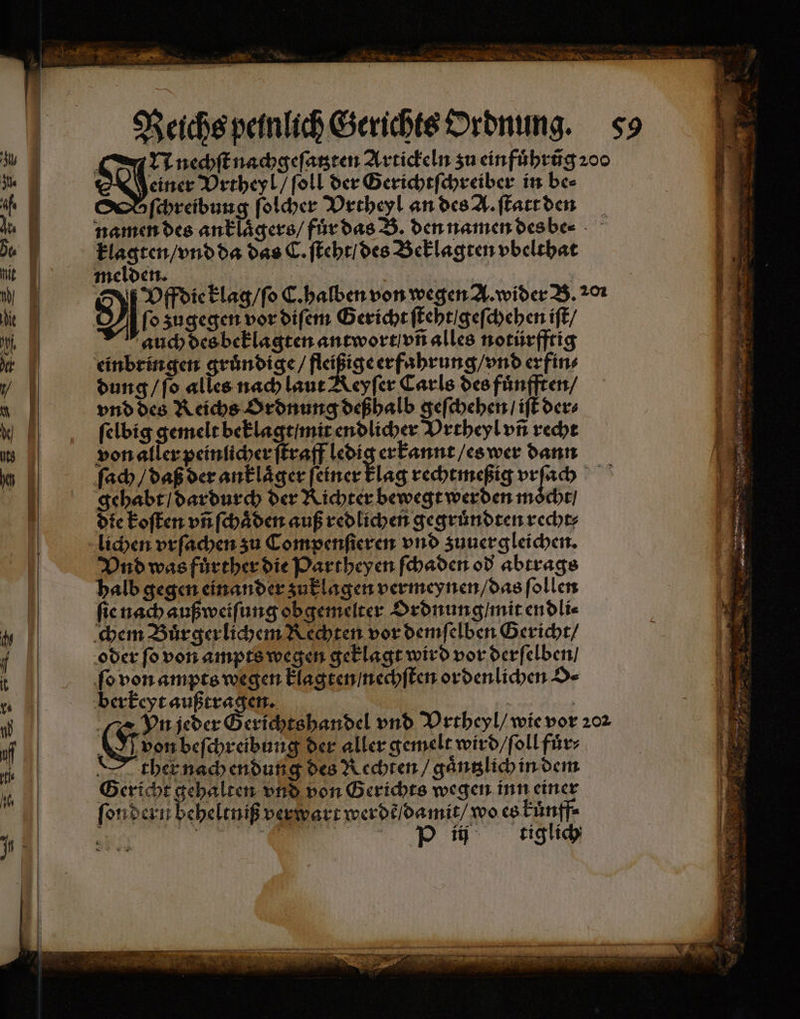 Reichs peinlich Gerichts Ordnung. 59
IN nechſt nachgeſatzten Artickeln zu einfuͤhrũg 200
einer Vrtheyl / ſoll der Gerichtſchreiber in be⸗
ſchreibung ſolcher Vrtheyl an des A. ſtatt den
namen des anklaͤgers / fuͤr das B. den namen des be⸗
klagten / vnd da das C. ſteht / des Beklagten vbelthat
melden.
AVff die klag / ſo C. halben von wegen A. wider B. 201
ſo zugegen vor diſem Gericht ſteht / geſchehen iſt /
auch des beklagten antwort / vñ alles notuͤrfftig
einbringen gruͤndige / fleißige erfahrung / vnd erfin⸗
dung / ſo alles nach laut Keyſer Carls des fuͤnfften /
vnd des Reichs Ordnung deßhalb geſchehen / iſt der⸗
ſelbig gemelt beklagt / mit endlicher Vrtheyl vñ recht
von aller peinlicher ſtraff ledig erkannt / es wer dann
ſach / daß der anklaͤger ſeiner klag rechtmeßig vrſach
gehabt / dardurch der Richter bewegt werden moͤcht /
die koſten vñ ſchaͤden auß redlichen gegruͤndten recht⸗
lichen vrſachen zu Compenſieren vnd zuuergleichen.
Vnd was fuͤrther die Partheyen ſchaden od abtrags
halb gegen einander zuklagen vermeynen / das ſollen
ſie nach außweiſung obgemelter Ordnung / mit endli⸗
chem Buͤrgerlichem Rechten vor demſelben Gericht /
oder ſo von ampts wegen geklagt wird vor derſelben /
ſo von ampts wegen klagten / nechſten ordenlichen O⸗
berkeyt außtragen.
EYn jeder Gerichtshandel vnd Vrtheyl / wie vor 202
von beſchreibung der aller gemelt wird / ſoll fuͤr⸗
ther nach endung des Rechten / gaͤntzlich in dem
Gericht gehalten vnd von Gerichts wegen inn einer
ſondern beheltniß verwart werdẽ / damit / wo es kuͤnff⸗
P iij tiglich